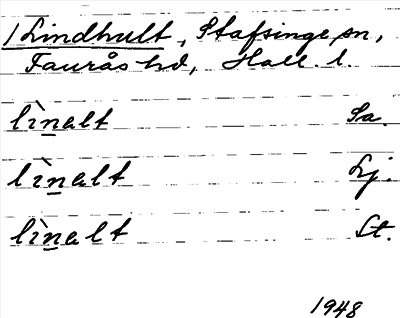 / Lindhult, Stafsinge sn,
Faurås hd, Hall. l.
lìnalt Sa.
lìnalt Lj.
lìnalt St.
1948